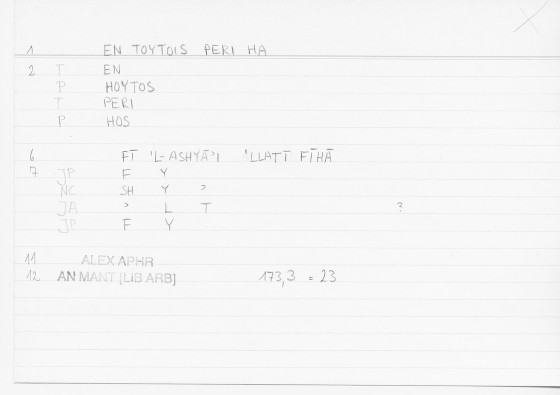 1 EN TOYTOIS PERI HA
2 T EN
P HOYTOS
T PERI
P HOS
6 FĪ 'L-ASHYĀ'I 'LLATĪ FĪHĀ
7 JP F Y
NC SH Y ʾ
JA ʾ L T ?
JP F Y
11 ALEX APHR
12 AN MANT [LIB ARB] 173,3 = 23